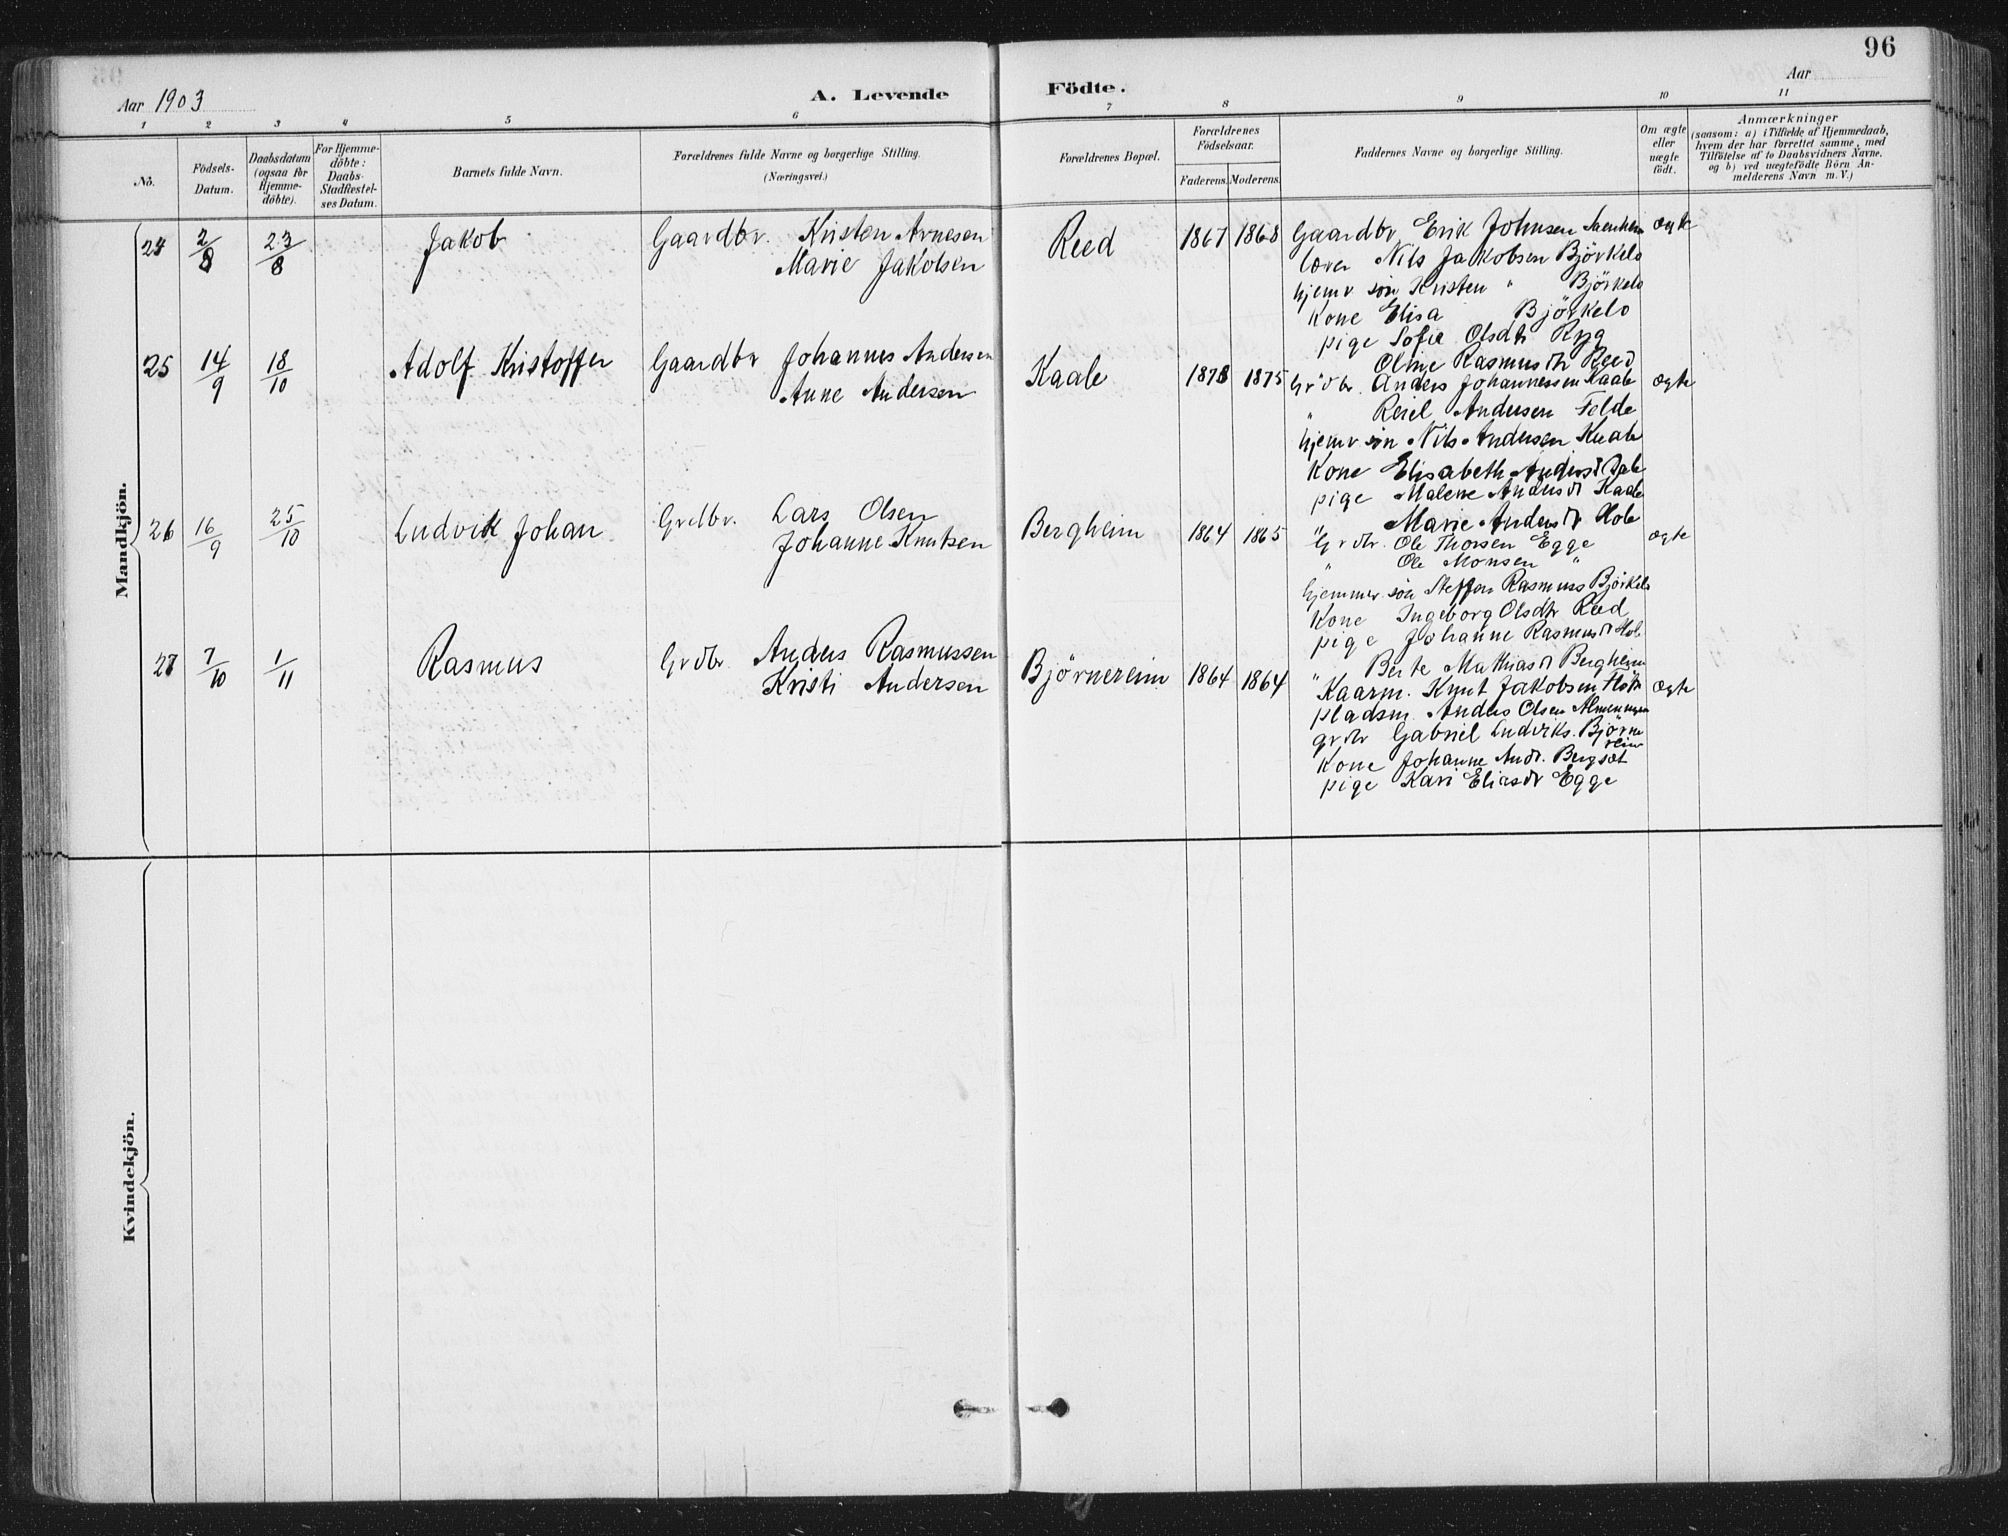 96
Aar 1903
A. Levende Födte.
Aar
1 2 3 4 5 6 7 8 9 10 11
No.
Födsels-Datum.
Daabsdatum (ogsaa for Hjemme-döbte).
For Hjemme-döbte: Daabs-Stadfæstel-ses Datum.
Barnets fulde Navn.
Forældrenes fulde Navne og borgerlige Stilling.
(Næringsvei.)
Forældrenes Bopæl.
Forældrenes Födselsaar.
Faderens. Moderens.
Faddernes Navne og borgerlige Stilling.
Om ægte eller uægte födt.
Anmærkninger
(saasom: a) i Tilfælde af Hjemmedaab,
hvem der har forrettet samme, med
Tilföielse af to Daabsvidners Navne.
og b) ved uægtefödte Börn An-
melderens Navn m. V.)
Mandkjön.
24 2/8 23/8 Jakob Gaardbr. Kristen Arnesen Reed 1867 1868 Gaardbr. Erik Johnsen ægte
Marie Jakobsen
lærer Nils Jakobsen Björkelo
hjemv søn Kristen " Björkelo
Kone Elisa Björkelo
pige Sofie Olsdtr Ryg
Oline Rasmusdtr Reed
25 14/9 18/10 Adolf Kristoffer Gaardbr Johannes Andersen Kaale 1873 1875 Grdbr. Anders Johannessen Kaale ægte
Anne Andersen
" Reiel Andersen Felde
hjemv søn Nils Andersen Kaale
Kone Elisabeth Andersd
pige Malene Andersdr Kaale
" Marie Andersdr Hole
26 16/9 25/10 Ludvik Johan Grdbr. Lars Olsen Bergheim 1864 1865 Grdbr. Ole Thorsen Egge ægte
Johanne Knutsen
" Ole Monsen "
hjemmev. søn Steffen Rasmuss Björkelo
Kone Ingeborg Olsdtr Reed
pige Johanne Rasmusdr Hole
" Berte Mathiasdr Bergheim
27 7/10 1/11 Rasmus Grdbr. Anders Rasmussen Bjørnereim 1864 1864 Kaarm. Knut Jakobsen ægte
Kristi Andersen
pladsm. Anders Olsen Almenningen
grdbr Gabriel Ludviks. Bjørnereim
Kone Johanne Andr. Bergset
pige Kari Eliasdr Egge
Kvindekjön.